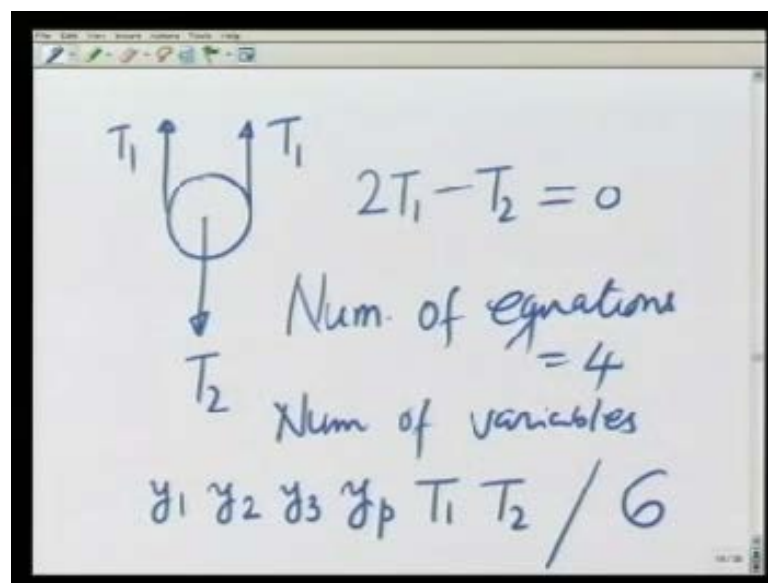 File Edit View Insert Actions Tools Help
T₁ T₁
2T₁ - T₂ = 0
Num. of equations
= 4
T₂
Num of variables
y₁ y₂ y₃ yₚ T₁ T₂ / 6